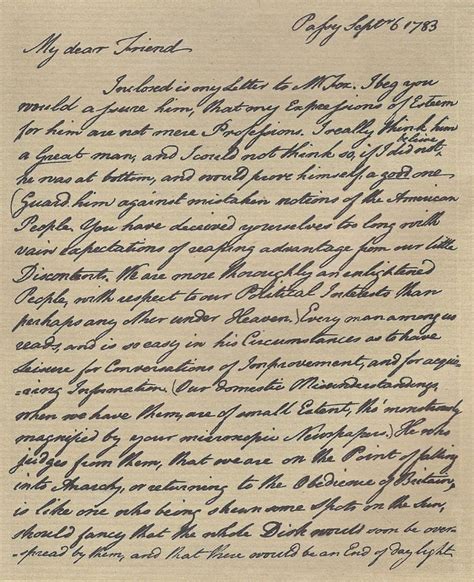 Passy Sept. 6 1783
My dear Friend
Inclosed is my Letter to Mr Fox. I beg you
would assure him, that my Expressions of Esteem
for him are not mere Professions. I really think him
a Great man, and I could not think so, if I did not believe
he was at bottom, and would prove himself a good one
(Guard him against mistaken notions of the American
People. You have deceived yourselves too long with
vain expectations of reaping advantage from our little
Discontents. We are more thoroughly an enlightened
People, with respect to our Political Interests than
perhaps any other under Heaven.) Every man among us
reads, and is so easy in his Circumstances as to have
Leisure for Conversations of Improvement, and for acqui-
-ring Information. (Our domestic Misunderstandings,
when we have them, are of small Extent, tho' monstrously
magnified by your microscopic Newspapers.) He who
judges from them, that we are on the Point of falling
into Anarchy, or returning to the Obedience of Britain,
is like one who being shewn some Spots on the Sun,
should fancy that the whole Disk would soon be over-
-spread by them, and that there would be an End of day light